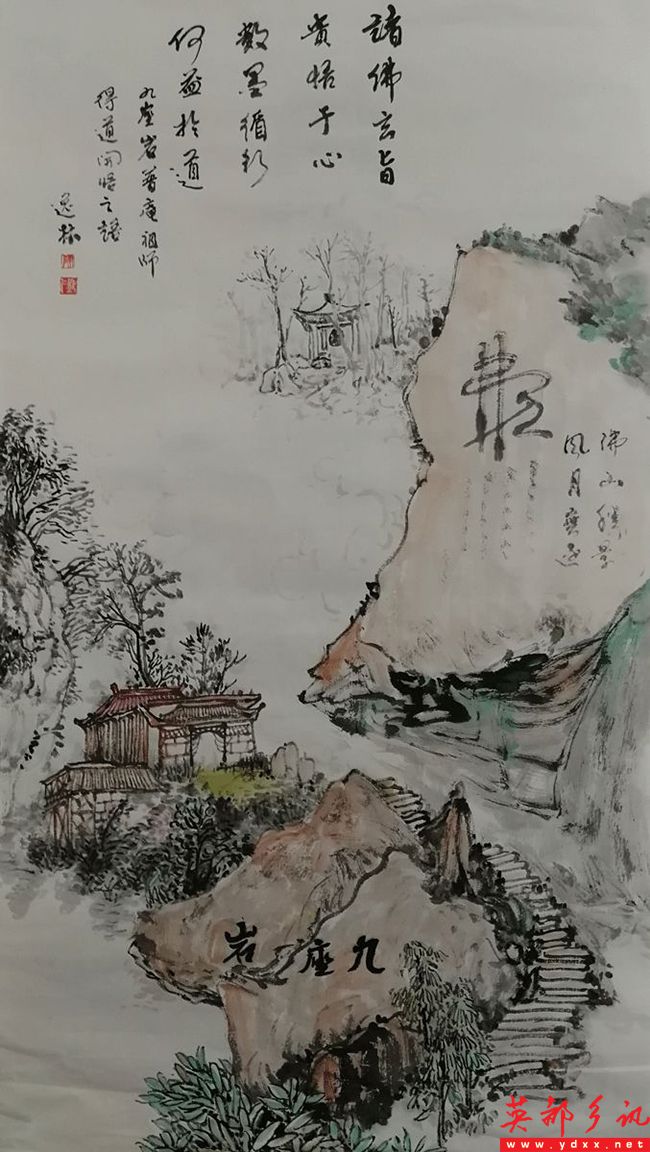 諸佛玄旨
貴悟于心
數墨循行
何益於道
九座岩普庵祖師
得道開悟之語
逸林
佛
佛山勝景
風月無邊
九座岩
英都乡讯
www.ydxx.net